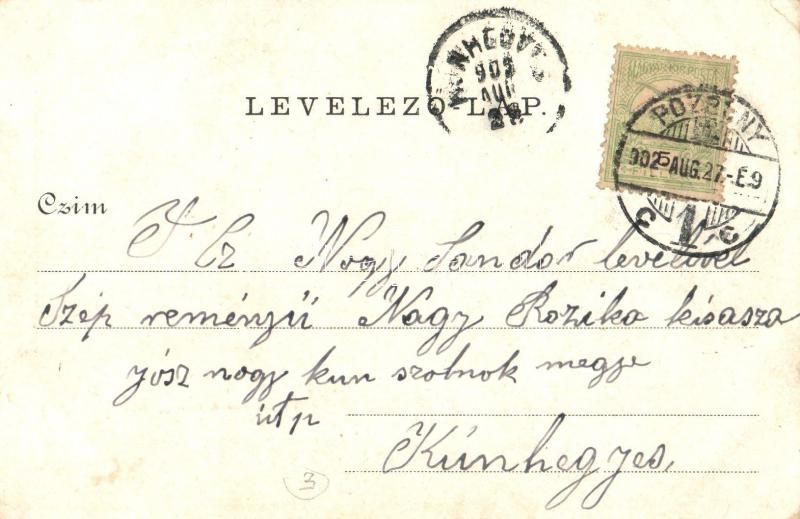 LEVELEZŐ LAP.
KUNHEGYES
902 AUG
POZSONY
902 AUG. 27.-É9
1
Czim
T. Cz Nagy Sandor levelével
Szép reményű Nagy Rozika kisasza
yósz nagy kun szolnok megye
útp
Kúnhegyes,
3